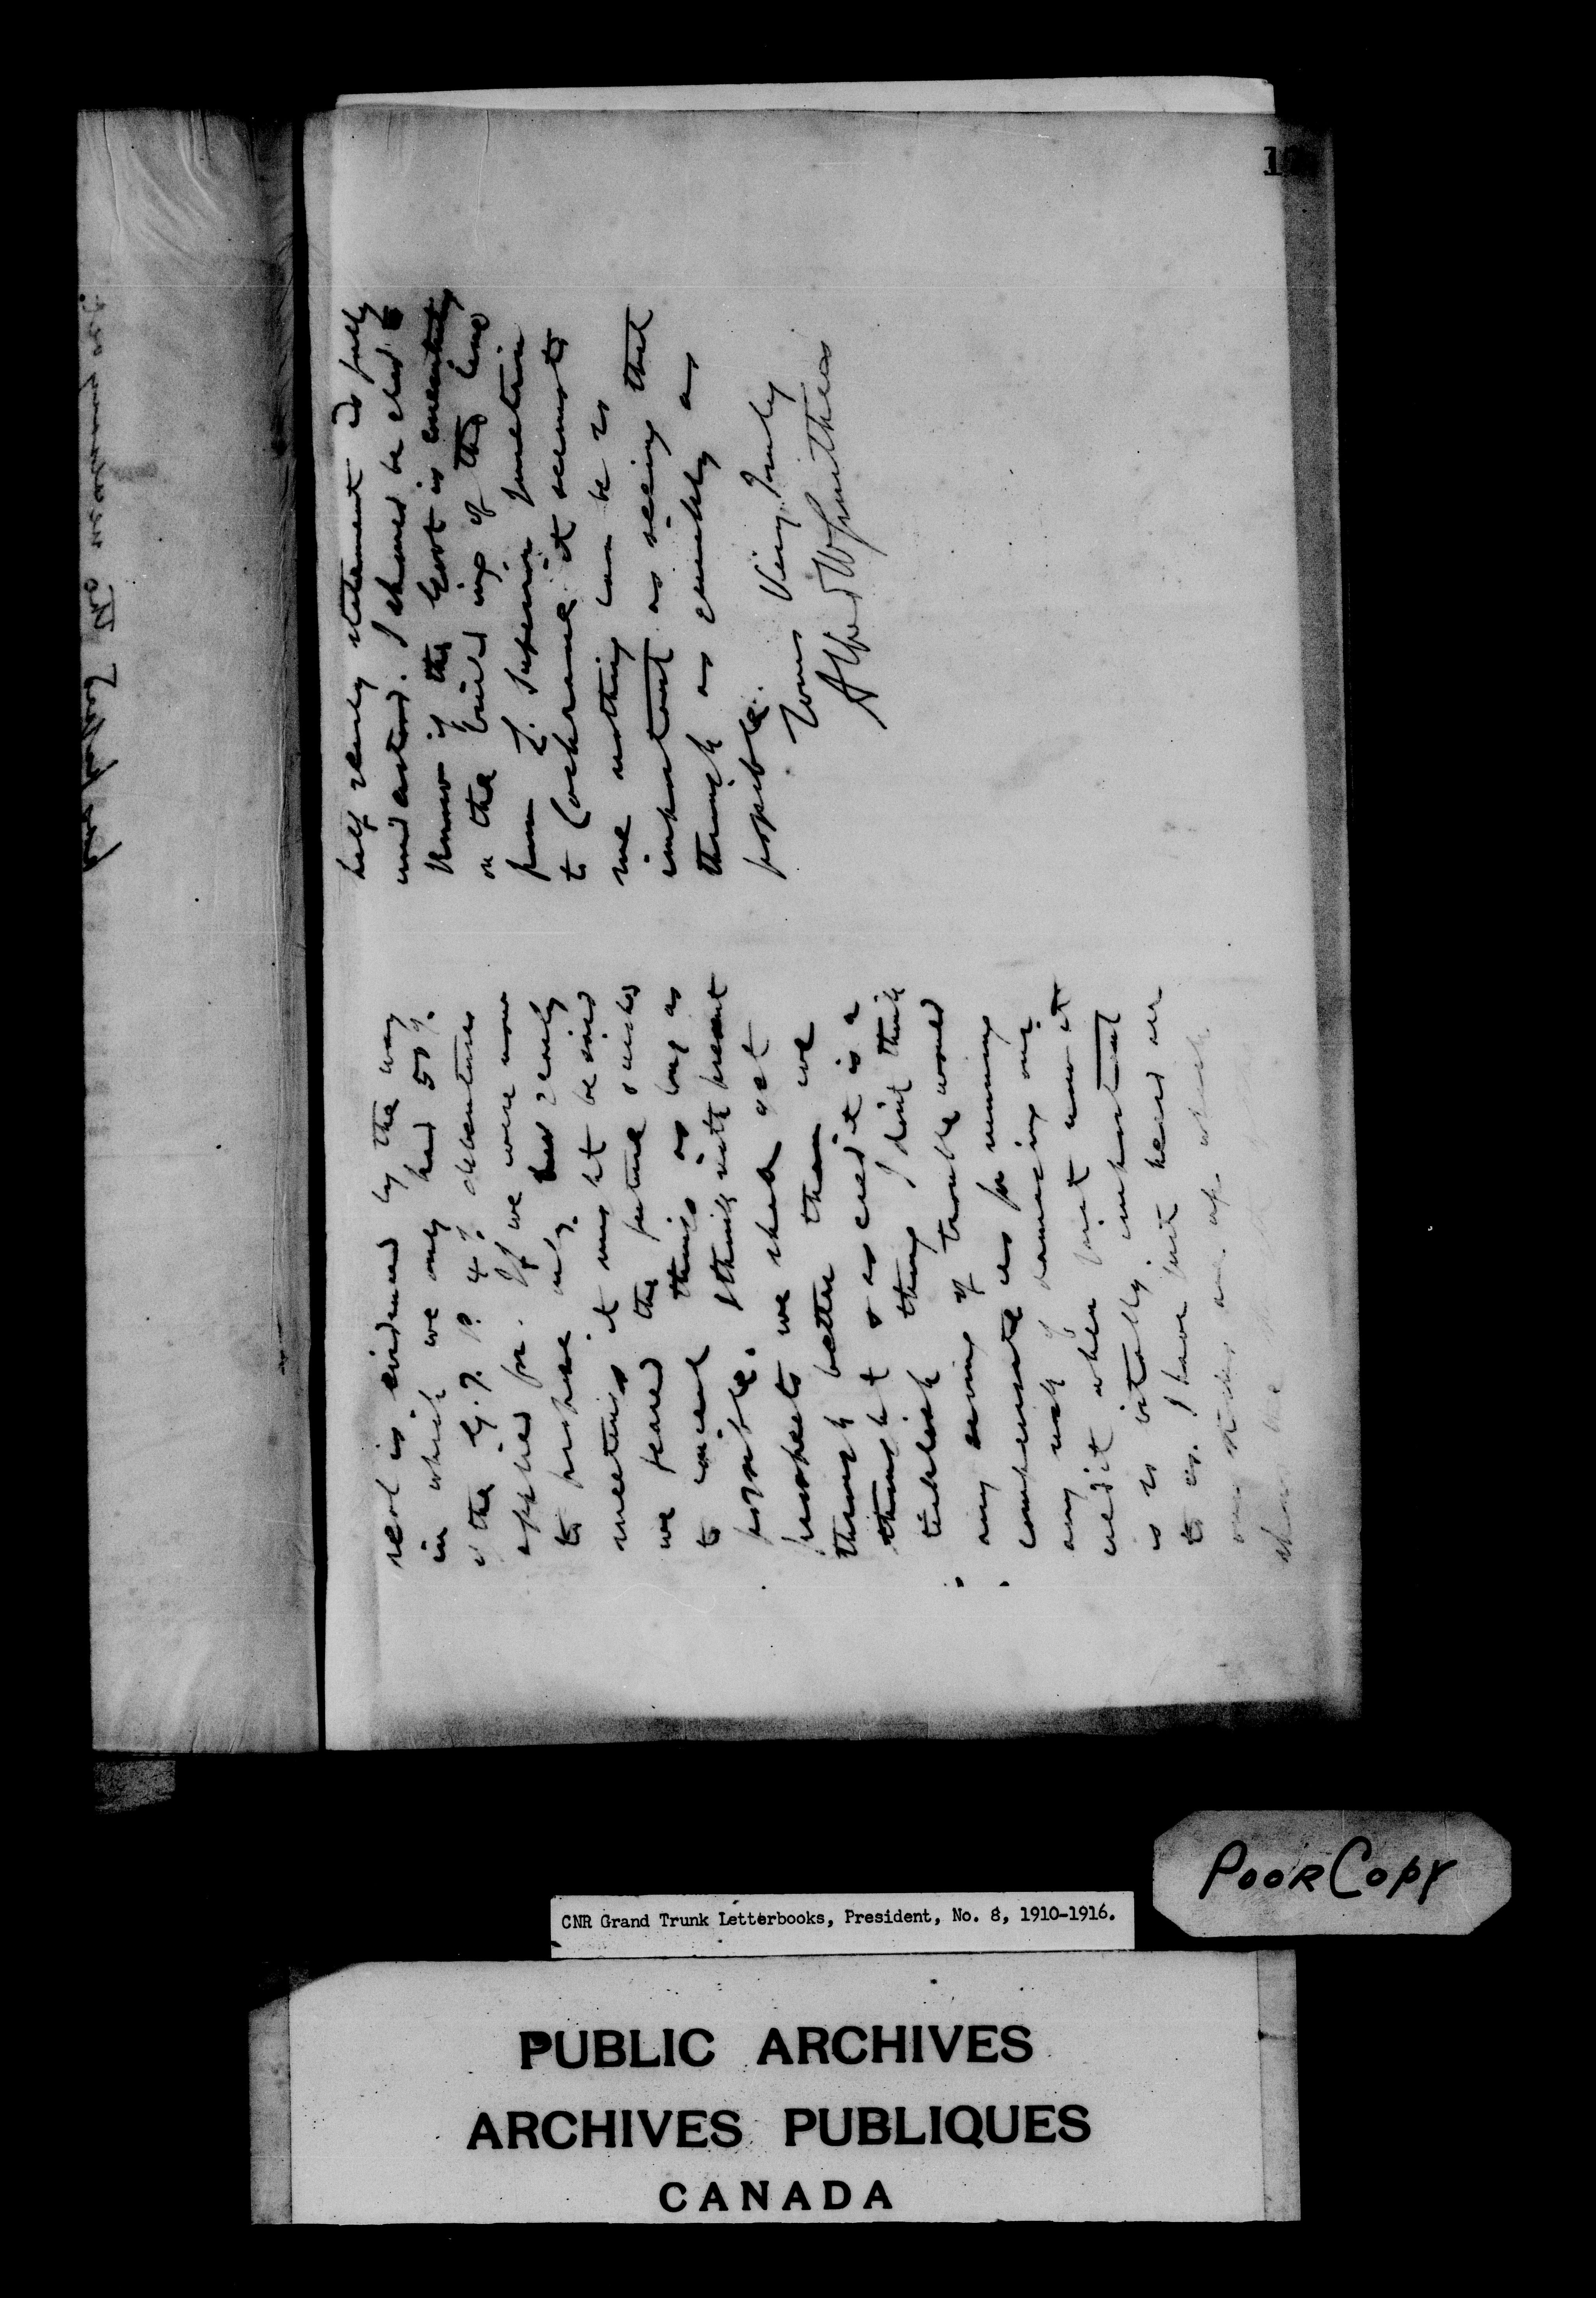 real is evidenced by the way
in which we only had 50%
of the G.T.P. 4% debentures
applied for. If we were now
to propose only two yearly
meetings it might be said
we feared the future & wished
to conceal things as long as
possible. I think with present
prospects we shall get
through better than we
thought & as credit is a
ticklish thing I don't think
any saving of trouble would
compensate us for running
any risk of damaging our
credit when just now it
is so vitally important
to us. I have just heard
our stocks are up which
shows the
half yearly statement is fully
understood. I should be glad to
know if the Govt is
on the building of the line
from L. Superior Junction
to Cochrane it seems to
me nothing can be so
important as seeing that
through as quickly as
possible.
Yours Very Truly
Alfred W Smithers
The meaning of
1
POOR COPY
CNR Grand Trunk Letterbooks, President, No. 8, 1910-1916.
PUBLIC ARCHIVES
ARCHIVES PUBLIQUES
CANADA